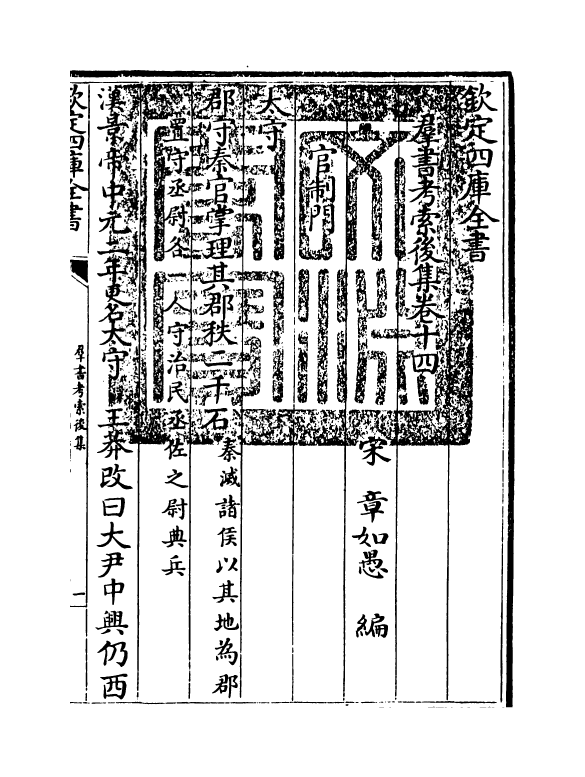 欽定四庫全書
羣書考索後集卷十四
宋 章如愚 編
官制門
太守
郡守秦官掌理其郡秩二千石秦滅諸侯以其地為郡
置守丞尉各一人守治民丞佐之尉典兵
漢景帝中元二年更名太守王莽改曰大尹中興仍西
欽定四庫全書
羣書考索後集
一